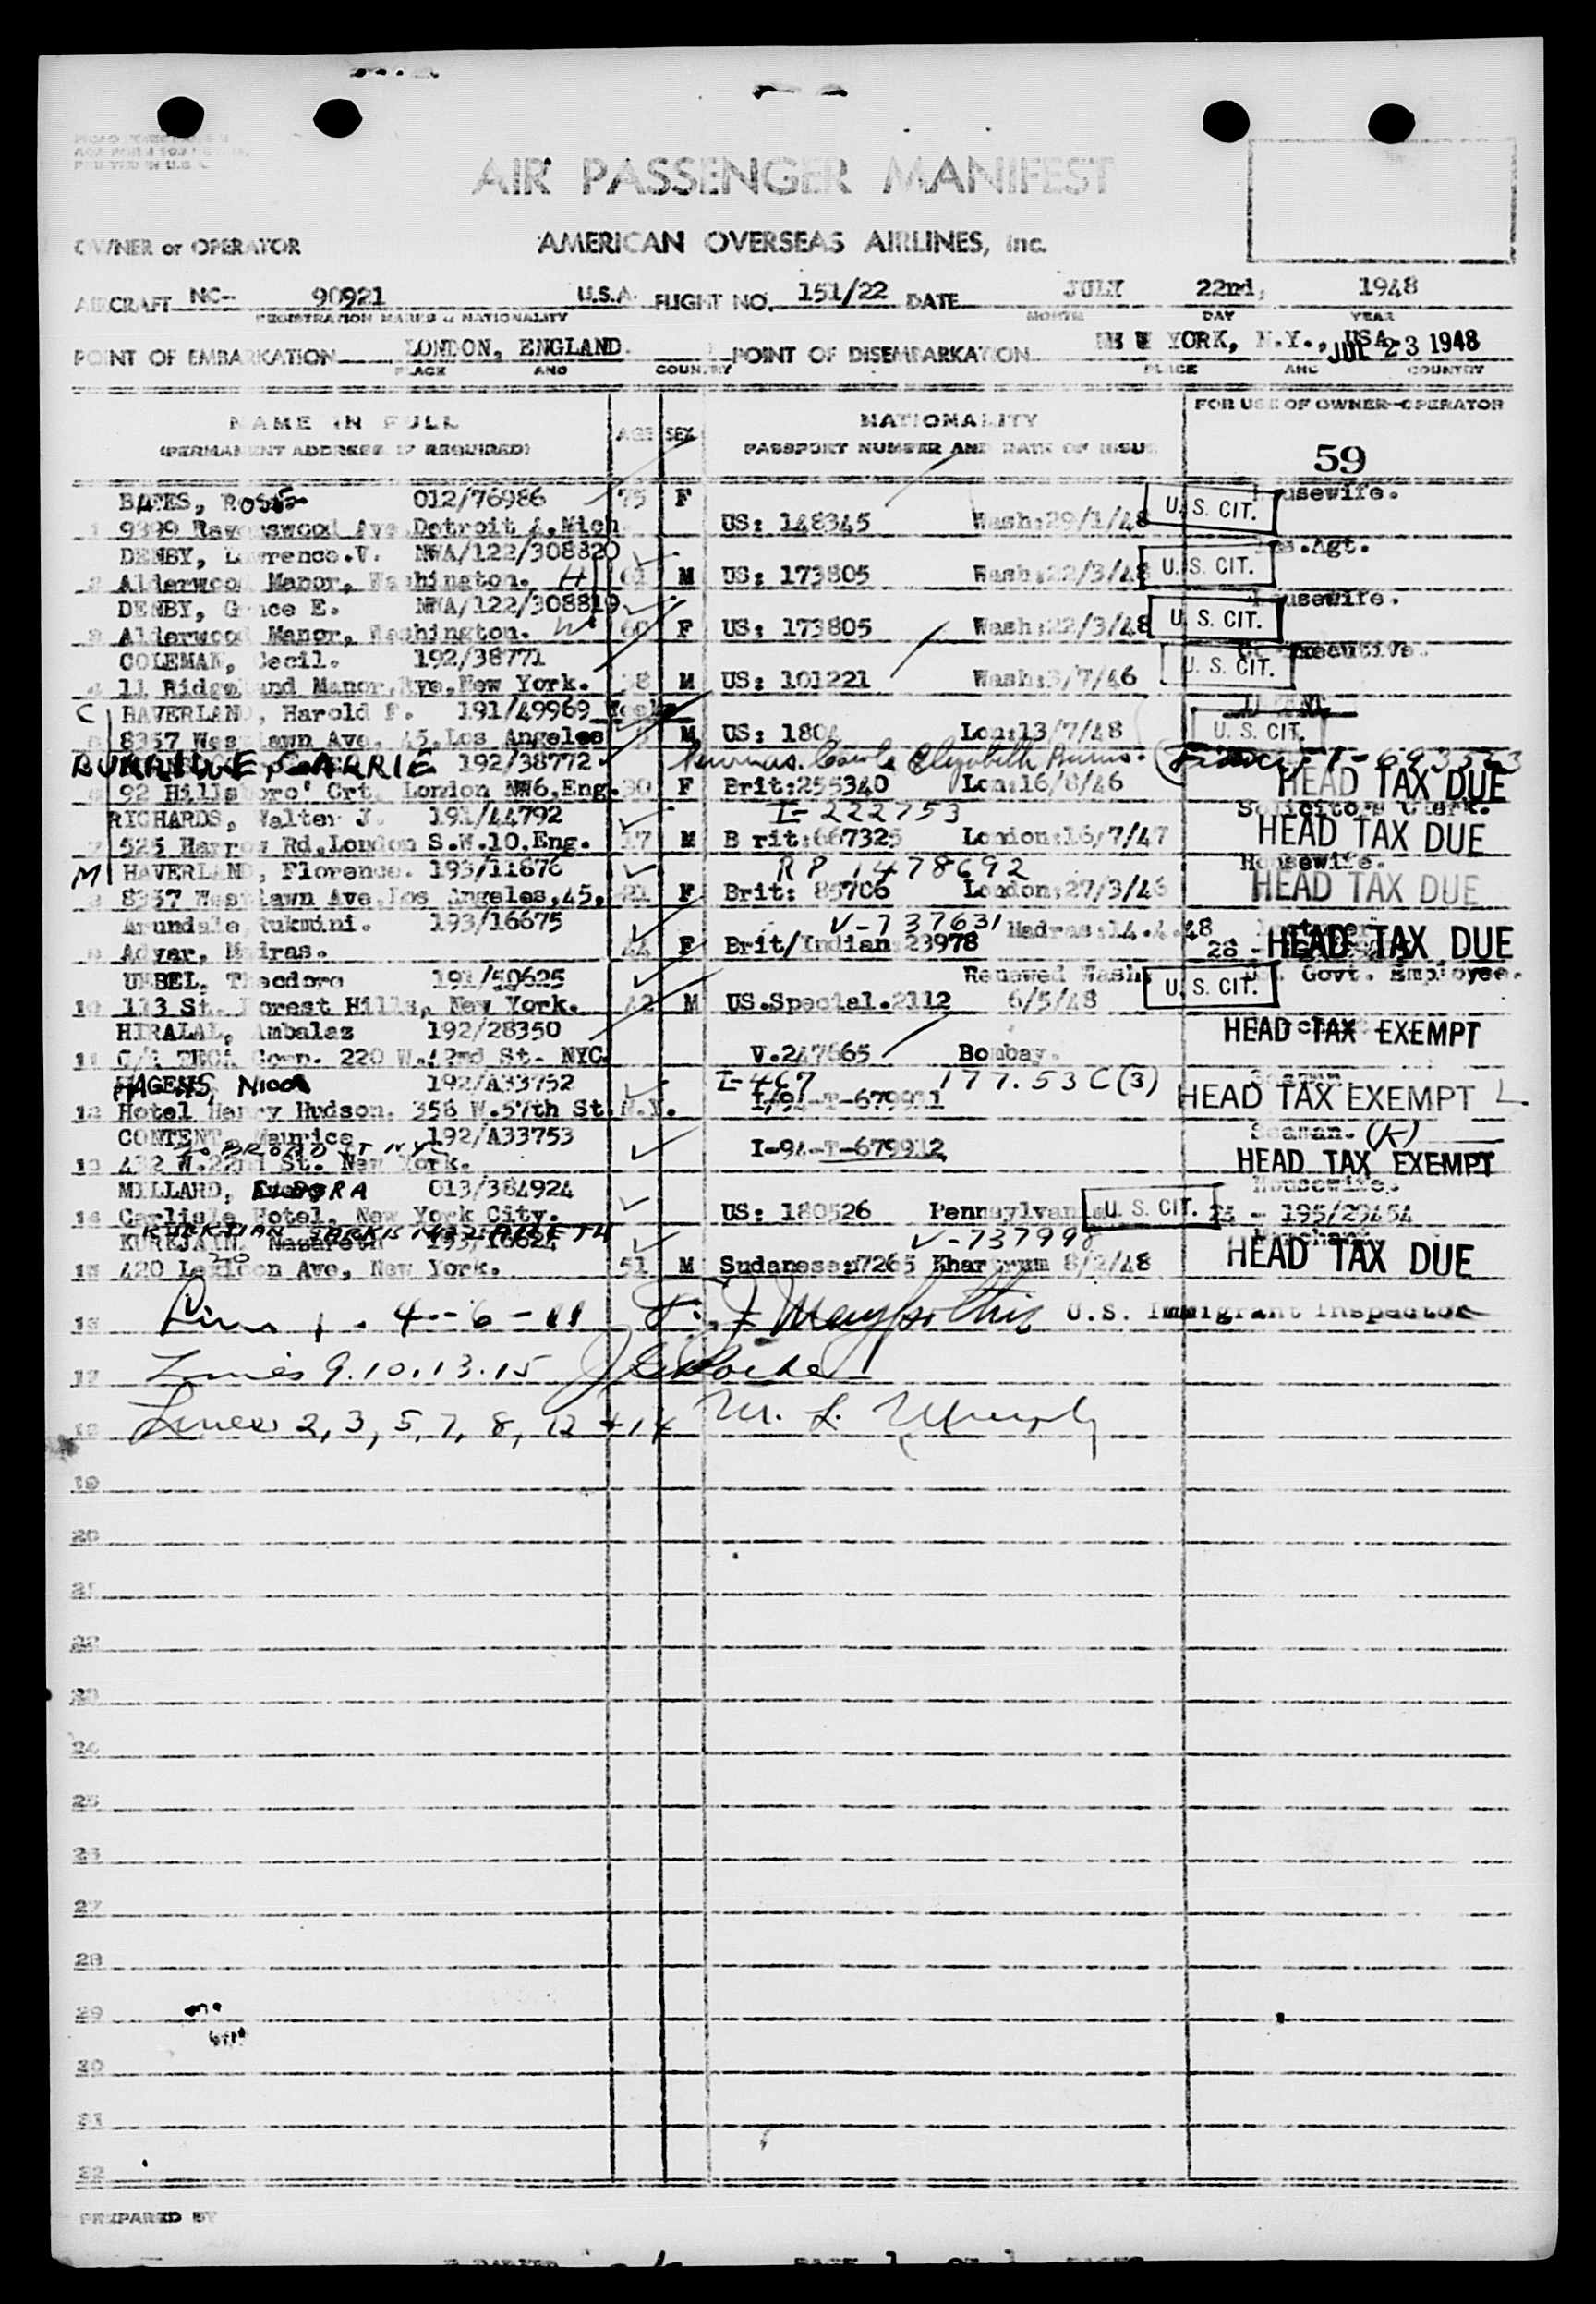 AIR PASSENGER MANIFEST
OWNER or OPERATOR AMERICAN OVERSEAS AIRLINES, Inc.
AIRCRAFT NC- 90921 U.S.A. FLIGHT NO. 151/22 DATE JULY 22nd, 1948
REGISTRATION MARKS & NATIONALITY MONTH DAY YEAR
POINT OF EMBARKATION LONDON, ENGLAND. POINT OF DISEMBARKATION NEW YORK, N.Y., USA. JUL 23 1948
PLACE AND COUNTRY PLACE AND COUNTRY
NAME IN FULL AGE SEX NATIONALITY FOR USE OF OWNER-OPERATOR
(PERMANENT ADDRESS IF REQUIRED) PASSPORT NUMBER AND DATE OF ISSUE 59
BATES, ROSE 012/76986 75 F Housewife.
1 9399 Ravenswood Ave Detroit 4, Mich US: 148345 Wash:29/1/48 U.S. CIT.
DENBY, Lawrence.V. NWA/122/308820 Ins.Agt.
2 Alderwood Manor, Washington. H M US: 173805 Wash:22/3/48 U.S. CIT.
DENBY, Grace E. NWA/122/308819 Housewife.
3 Alderwood Manor, Washington. W 60 F US: 173805 Wash:22/3/48 U.S. CIT.
COLEMAN, Cecil. 192/38771 Executive.
4 11 Ridgeland Manor, Rye, New York. 38 M US: 101221 Wash:3/7/46 U.S. CIT.
C HAVERLAND, Harold F. 191/49969
5 8357 Westlawn Ave. 45, Los Angeles M US: 1804 Lon:13/7/48 U.S. CIT.
BURRIDGE, CARRIE 192/38772 Elizabeth
6 92 Hillsboro' Crt. London NW6, Eng. 30 F Brit:255340 Lon:16/8/46 HEAD TAX DUE
RICHARDS, Walter J. 191/44792 I-222753 Solicitors Clerk.
7 525 Harrow Rd, London S.W.10. Eng. 17 M Brit:667325 London:16/7/47 HEAD TAX DUE
M HAVERLAND, Florence. 193/11876 RP 1478692 Housewife.
8 8357 Westlawn Ave, Los Angeles, 45, 21 F Brit: 85706 London:27/3/46 HEAD TAX DUE
Arundale, Rukmini. 193/16675 V-737631 Madras:14.4.48
9 Adyar, Madras. 44 F Brit/Indian 23978 HEAD TAX DUE
UNBEL, Theodore 191/50625 Renewed Wash. U.S. Govt. Employee.
10 113 St. Forest Hills, New York. 42 M US.Special.2112 6/5/48 U.S. CIT.
HIRALAL, Ambalaz 192/28350 HEAD TAX EXEMPT
11 220 W.42nd St. NYC. V.247665 Bombay.
HAGENS, Nicon 192/A33752 I-467 177.53C(3) Seaman.
12 Hotel Henry Hudson. 358 W.57th St. N.Y. I-94-T-679911 HEAD TAX EXEMPT
CONTENT, Maurice 192/A33753 Seaman. (K)
BROAD ST NYC
13 432 W.22nd St. New York. I-94-T-679912 HEAD TAX EXEMPT
MILLARD, EUDORA 013/384924 Housewife.
14 Carlisle Hotel, New York City. US: 180526 Pennsylvania U.S. CIT. - 195/29454
KURKJIAN SARKIS NAZARETH
KUREJAIN, Nazareth 193/16624 V-737998 Merchant.
15 420 Lexington Ave, New York. 51 M Sudanese:7265 Khartoum 8/2/48 HEAD TAX DUE
16 Lines 1. 4-6-11 U.S. Immigrant Inspector
17 Lines 9.10.13.15
18 Lines 2, 3, 5, 7, 8, 12 + 14 M. L. Murphy
19
20
21
22
23
24
25
26
27
28
29
30
31
32
PREPARED BY